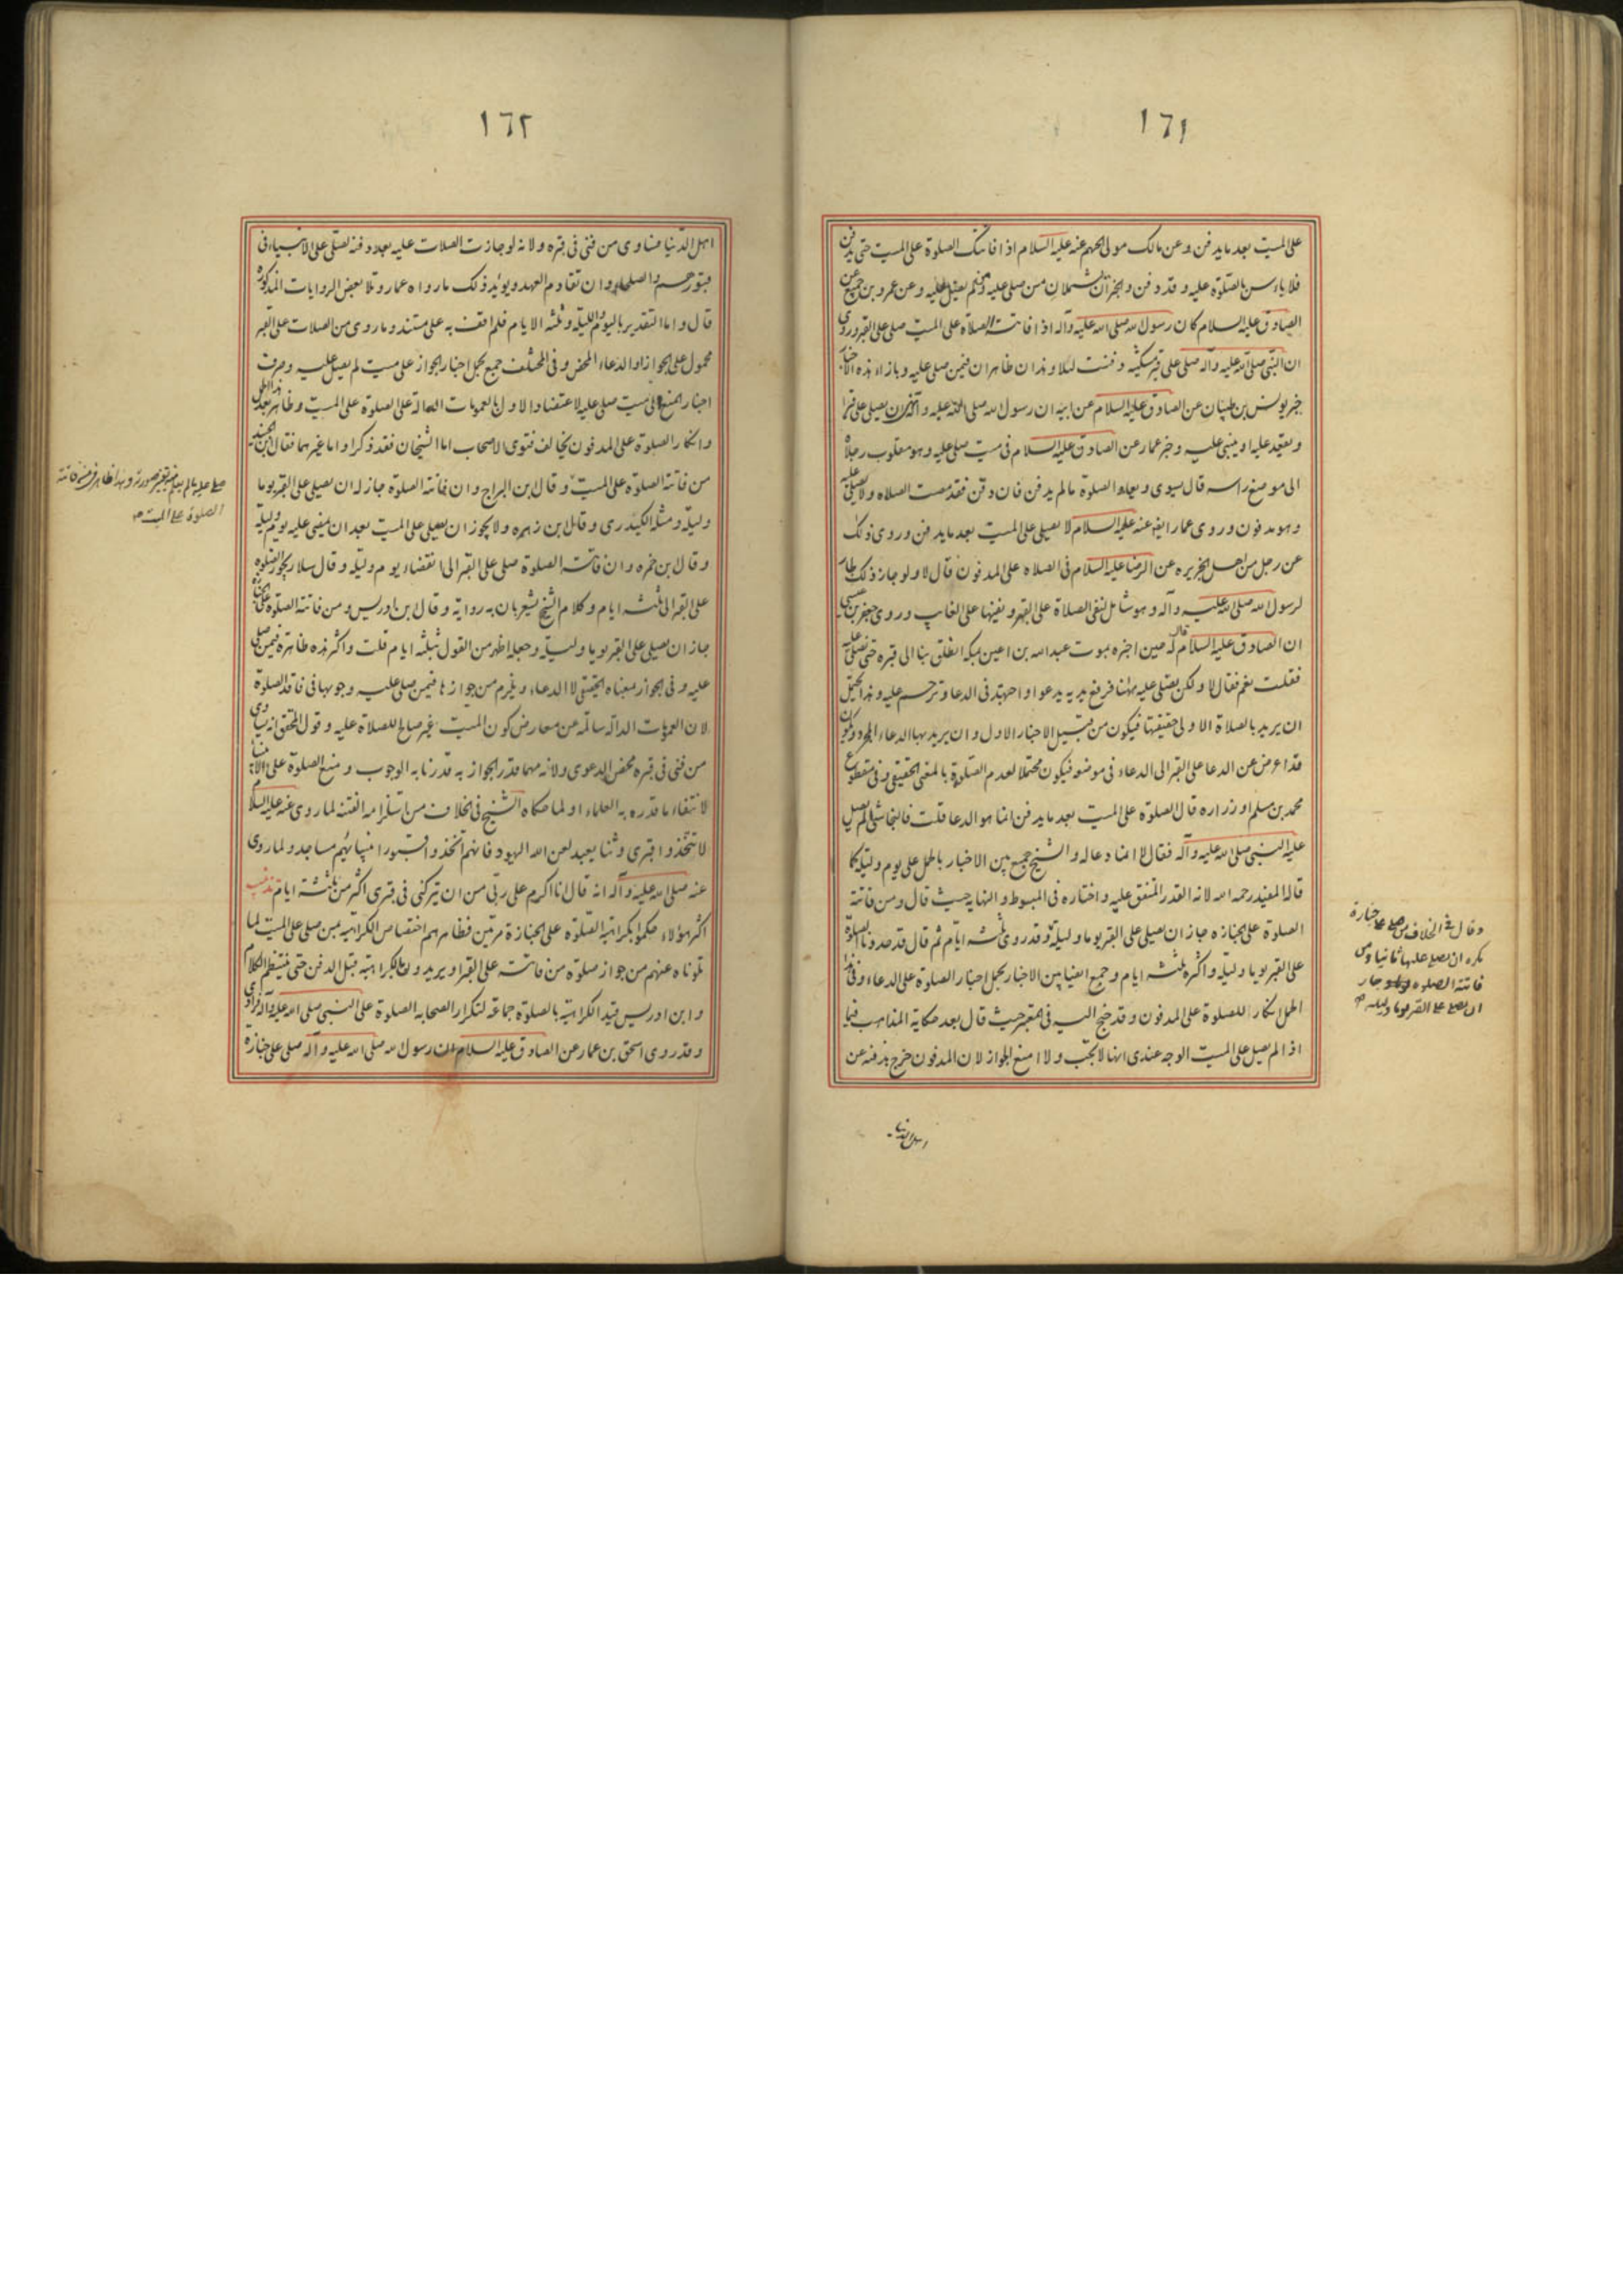 ١٦١
على الميت بعد ما يدفن وعن مالك مولى الجهم عنه عليه السلام اذا فاتتك الصلوة على الميت حتى يدفن
فلا باس بالصلوة عليه وقد دفن والخبران يشملان من صلى عليه ومن لم يصل عليه وعن عمرو بن جميع عن
الصادق عليه السلام كان رسول الله صلى الله عليه وآله اذا فاتته الصلاة على الميت صلى على القبر وروى
ان النبي صلى الله عليه وآله صلى على قبر مسكينة دفنت ليلا وهذان ظاهران فيمن صلى عليه وبازاء هذه الاخبار
خبر يونس بن ظبيان عن الصادق عليه السلام عن ابيه ان رسول الله صلى الله عليه وآله نهى ان يصلى على قبر او
ويقعد عليه او يبنى عليه وخبر عمار عن الصادق عليه السلام في ميت صلى عليه وهو مقلوب رجلاه
الى موضع راسه قال يسوى ويعاد الصلوة ما لم يدفن فان دفن فقد مضت الصلاه ولا يصلى عليه
وهو مدفون وروى عمار ايضا عنه عليه السلام لا يصلى على الميت بعد ما يدفن وروى ذلك
عن رجل من اهل الجزيره عن الرضا عليه السلام في الصلاه على المدفون قال لا ولو جاز ذلك لجاز
لرسول الله صلى الله عليه وآله وهو شامل لنفى الصلاة على القبر ونفيها على الغايب وروى جعفر بن عيسى
ان الصادق عليه السلام قال له حين اخبره بموت عبدالله بن اعين بمكة انطلق بنا الى قبره حتى نصلى عليه
فقلت نعم فقال لا ولكن نصلى عليه ههنا فرفع يديه يدعو واجتهد في الدعا وترحم عليه وهذا يحتمل
ان يريد بالصلاة الاولى حقيقتها فيكون من قبيل الاخبار الاول وان يريد بها الدعاء المجرد ويكون
قد اعرض عن الدعا على القبر الى الدعاء في موضعه فيكون محتملا لعدم الصلوة بالمعنى الحقيقي وفي مقطوع
محمد بن مسلم او زراره قال الصلوة على الميت بعد ما يدفن انما هو الدعا قلت فالنجاشي لم يصل
عليه النبي صلى الله عليه وآله فقال لا انما دعا له والشيخ جمع بين الاخبار بالحمل على يوم وليلة كما
قاله المفيد رحمه الله لانه القدر المتفق عليه واختاره في المبسوط والنهايه حيث قال ومن فاتته
الصلوة على الجنازه جاز ان يصلى على القبر يوما وليلة وقد روى ثلثة ايام ثم قال قد حددنا الصلوة
على القبر يوما وليلة واكثره ثلثة ايام وجمع ايضا بين الاخبار بحمل اخبار الصلوة على الدعاء وفي هذا
الحمل انكار للصلوة على المدفون وقد جنح اليه في المعتبر حيث قال بعد حكاية المذاهب فيما
اذا لم يصل على الميت الوجه عندى انها لا تجب ولا امنع الجواز لان المدفون خرج بدفنه عن
اهل الدنيا
وقال في الخلاف من صلى على جنازة
يكره ان يصلى عليها ثانيا ومن
فاتته الصلوة جاز
ان يصلى على القبر يوما وليلة
١٦٢
اهل الدنيا فساوى من فنى في قبره ولانه لو جازت الصلاة عليه بعد دفنه لصلى على الانبياء في
قبورهم والصلحاء وان تقادم العهد ويؤيد ذلك ما رواه عمار وتلا بعض الروايات المذكورة
قال واما التقدير باليوم والليلة وثلثه الايام فلم اقف به على مستند وما روى من الصلات على القبر
محمول على الجواز او الدعاء المحض وفي المختلف جمع بحمل اخبار الجواز على ميت لم يصل عليه وصرف
اخبار المنع الى ميت صلى عليه لاعتضاد الاول بالعمومات الدالة على الصلوة على الميت وظاهر
وانكار الصلوة على المدفون يخالف فتوى الاصحاب اما الشيخان فقد ذكرا واما غيرهما فقال ابن الجنيد
من فاتته الصلوة على الميت وقال ابن البراج وان فاتته الصلوة جاز له ان يصلى على القبر يوما
وليلة ومثله الكيدرى وقال ابن زهره ولا يجوز ان يصلى على الميت بعد ان يمضى عليه يوم وليلة
وقال ابن حمزه وان فاتت الصلوة صلى على القبر الى انقضاء يوم وليلة وقال سلار يجوز الصلوة
على القبر الى ثلثه ايام وكلام الشيخ يشعر بان به رواية وقال ابن ادريس ومن فاتته الصلوة على الجنازة
جاز ان يصلى على القبر يوما وليلة وجعله اظهر من القول بثلثه ايام قلت واكثر هذه ظاهرة فيمن صلى
عليه وفي الجواز بمعناه الحقيقي لا الدعاء ويلزم من جوازها فيمن صلى عليه وجوبها في فاقد الصلوة
لان العمومات الدالة سالمة عن معارض كون الميت غير صالح للصلاة عليه وقول المحقق انه يساوى
من فنى في قبره محض الدعوى ولانه مهما قدر الجواز به قدرنا به الوجوب ومنع الصلوة على الانبياء
لانتفاء ما قدره به العلماء او لما حكاه الشيخ في الخلاف من استلزامه الفتنة لما روى عنه عليه السلام
لا تتخذوا قبرى وثنا يعبد لعن الله اليهود فانهم اتخذوا قبور انبيائهم مساجد ولما روى
عنه صلى الله عليه وآله انه قال انا اكرم على ربى من ان يتركنى في قبرى اكثر من ثلثة ايام تذنيب
اكثر هؤلاء حكموا بكراهية الصلوة على الجنازة مرتين فظاهرهم اختصاص الكراهية بمن صلى على الميت لما
تلوناه عنهم من جواز صلوة من فاتته على القبر او يريدون بالكراهية قبل الدفن حتى ينتظم الكلام
وابن ادريس قيد الكراهية بالصلوة جماعة لتكرار الصحابة الصلوة على النبي صلى الله عليه وآله فرادى
وقد روى اسحق بن عمار عن الصادق عليه السلام ان رسول الله صلى الله عليه وآله صلى على جنازة
صلى عليه ما لم يعلم منه تغير صورته وهذا ظاهر في من فاتته
الصلوة على الميت